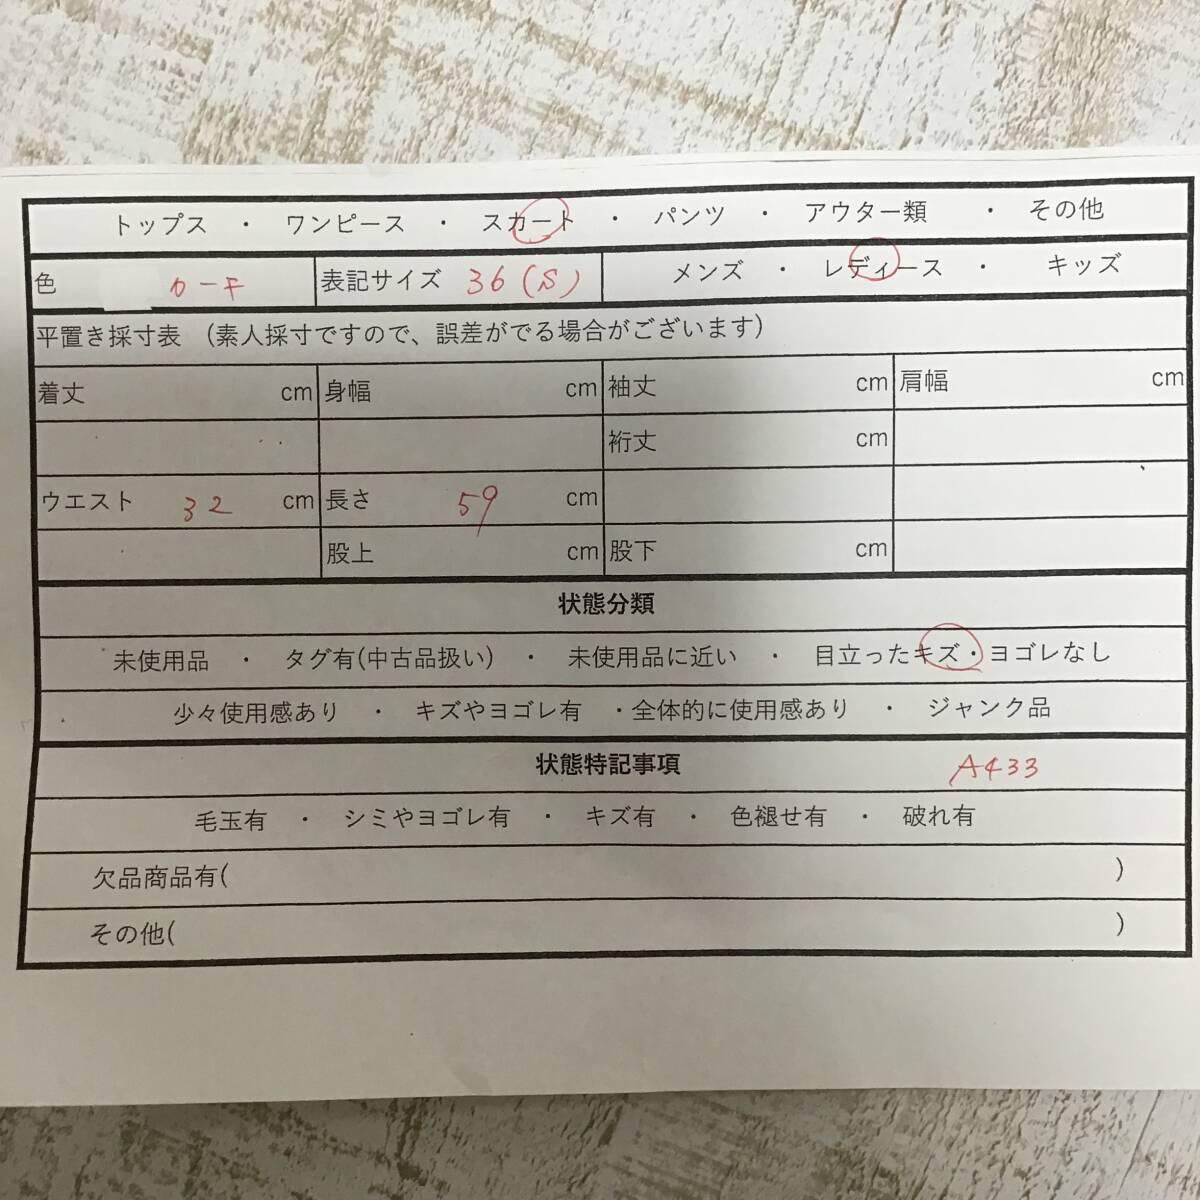 トップス ・ ワンピース ・ スカート ・ パンツ ・ アウター類 ・ その他
色 カーキ 表記サイズ 36(S) メンズ ・ レディース ・ キッズ
平置き採寸表 (素人採寸ですので、誤差がでる場合がございます)
着丈 cm 身幅 cm 袖丈 cm 肩幅 cm
裄丈 cm
ウエスト 32 cm 長さ 59 cm
股上 cm 股下 cm
状態分類
未使用品 ・ タグ有(中古品扱い) ・ 未使用品に近い ・ 目立ったキズ・ヨゴレなし
少々使用感あり ・ キズやヨゴレ有 ・全体的に使用感あり ・ ジャンク品
状態特記事項 A433
毛玉有 ・ シミやヨゴレ有 ・ キズ有 ・ 色褪せ有 ・ 破れ有
欠品商品有( )
その他( )